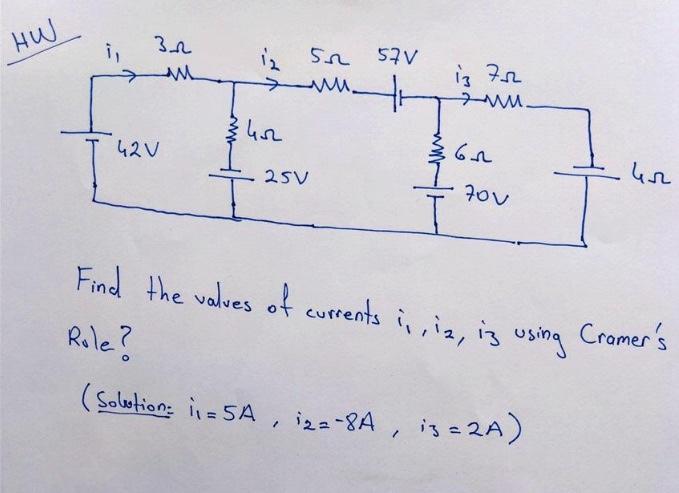 HW
i₁ 3Ω i₂ 5Ω 57V i₃ 7Ω
42V 4Ω 6Ω 4Ω
25V 70V
Find the values of currents i₁, i₂, i₃ using Cramer's
Role?
(Solution: i₁=5A , i₂=-8A , i₃=2A)